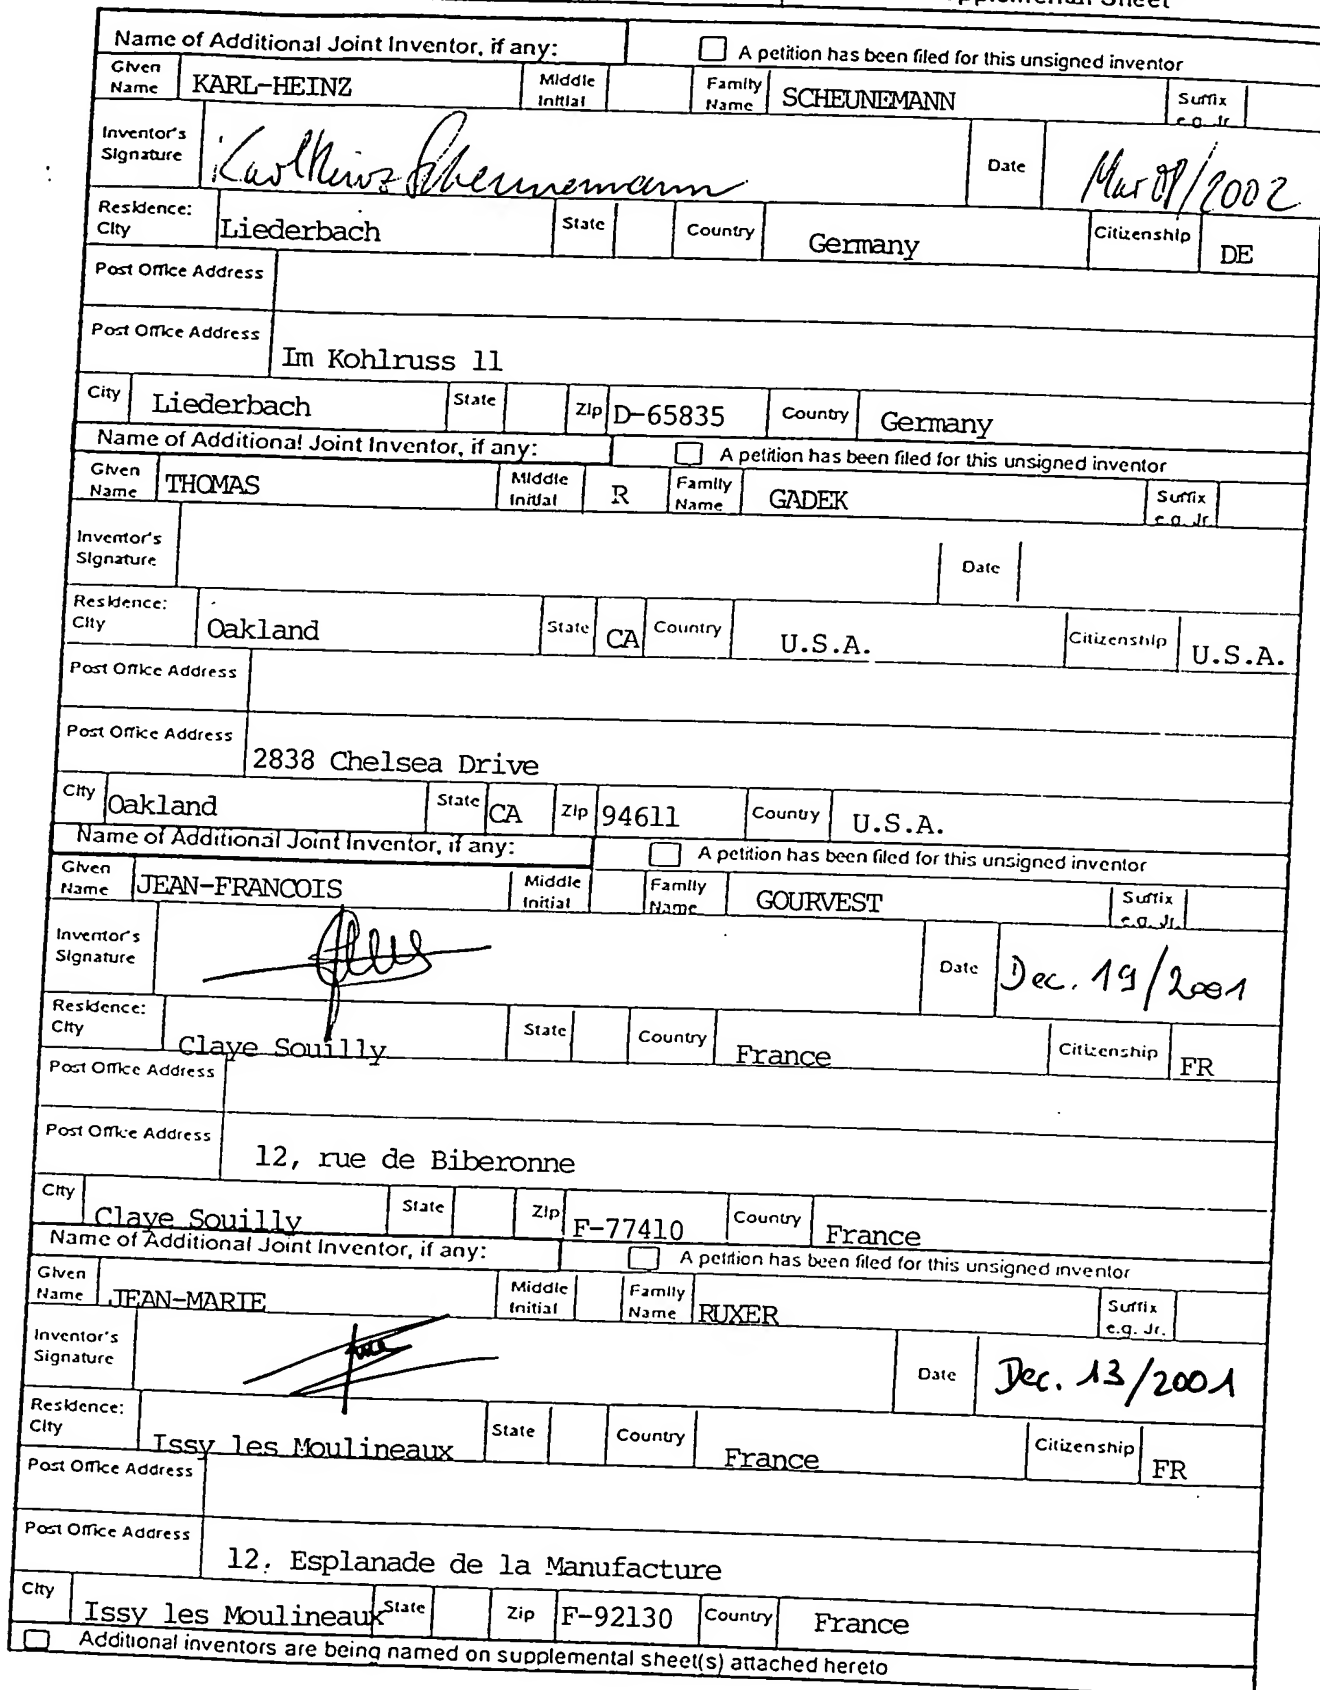 Supplemental Sheet
Name of Additional Joint Inventor, if any: A petition has been filed for this unsigned inventor
Given Name KARL-HEINZ Middle Initial Family Name SCHEUNEMANN Suffix e.g. Jr.
Inventor's Signature Karl Heinz Scheunemann Date Mar 08/2002
Residence: City Liederbach State Country Germany Citizenship DE
Post Office Address
Post Office Address Im Kohlruss 11
City Liederbach State Zip D-65835 Country Germany
Name of Additional Joint Inventor, if any: A petition has been filed for this unsigned inventor
Given Name THOMAS Middle Initial R Family Name GADEK Suffix e.g. Jr
Inventor's Signature Date
Residence: City Oakland State CA Country U.S.A. Citizenship U.S.A.
Post Office Address
Post Office Address 2838 Chelsea Drive
City Oakland State CA Zip 94611 Country U.S.A.
Name of Additional Joint Inventor, if any: A petition has been filed for this unsigned inventor
Given Name JEAN-FRANCOIS Middle Initial Family Name GOURVEST Suffix e.g. Jr.
Inventor's Signature Date Dec. 19/2001
Residence: City Claye Souilly State Country France Citizenship FR
Post Office Address
Post Office Address 12, rue de Biberonne
City Claye Souilly State Zip F-77410 Country France
Name of Additional Joint Inventor, if any: A petition has been filed for this unsigned inventor
Given Name JEAN-MARIE Middle Initial Family Name RUXER Suffix e.g. Jr.
Inventor's Signature Date Dec. 13/2001
Residence: City Issy les Moulineaux State Country France Citizenship FR
Post Office Address
Post Office Address 12. Esplanade de la Manufacture
City Issy les Moulineaux State Zip F-92130 Country France
Additional inventors are being named on supplemental sheet(s) attached hereto